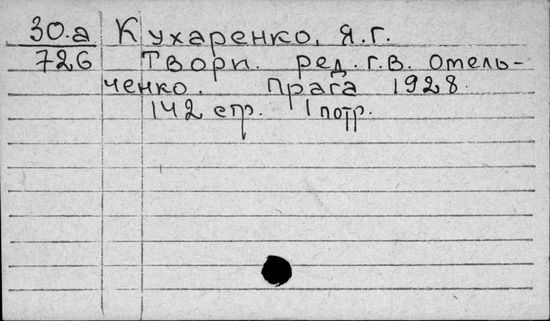 30.а Кухаренко, Я.Г.
726 Твори. ред. г.в. Омель-
ченко. Прага 1928.
142 стр. 1 потр.